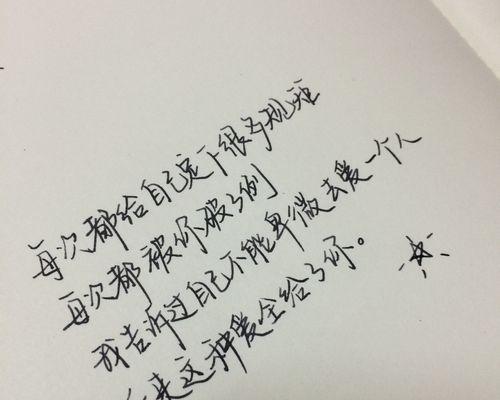 每次都给自己定下很多规矩
每次都被你破了例
我告诉过自己不能卑微去爱一个人
来这种爱全给了你。